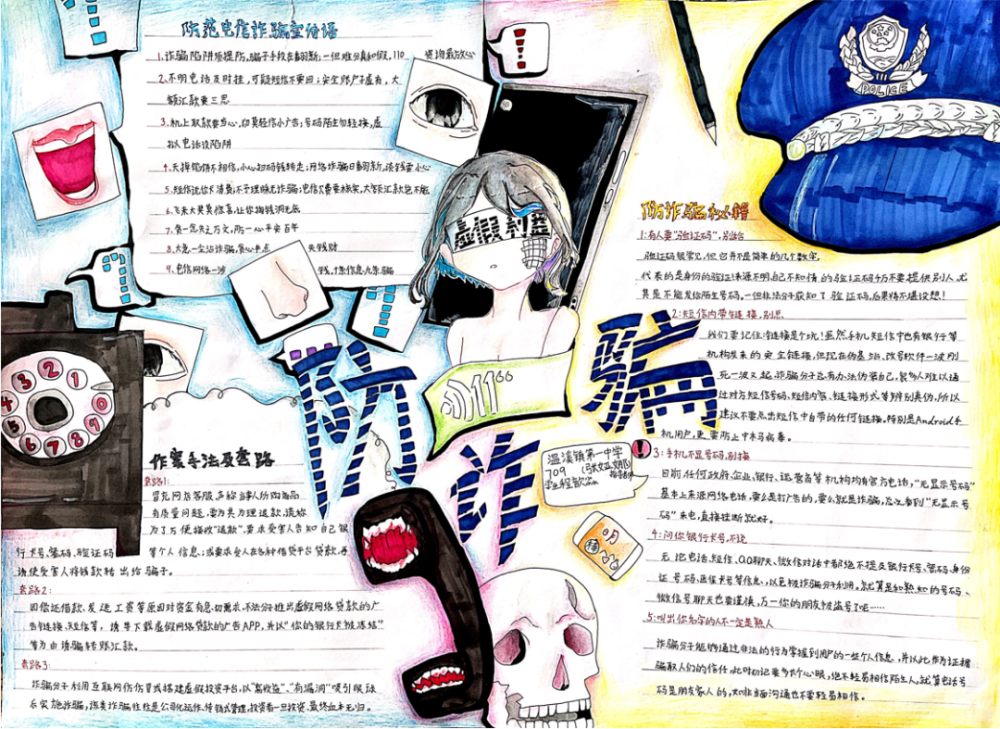 防范电信诈骗宣传语
1.诈骗陷阱须提防,骗子手段在翻新;一但难分真和假,110 咨询最放心
2.不明电话及时挂,可疑短信不要回;安全账户子虚有,大
额汇款要三思
3.机上取款要当心,切莫轻信小广告;号码陌生勿轻接,虚
拟电话设陷阱
4.天掉馅饼不相信,小心扫码钱转走;网络诈骗日翻新,谈钱要小心
5.短信说你卡消费,不予理睬无诈骗;电信欠费要核实,大客汇款也不能
6.飞来大奖莫惊喜,让你掏钱洞无底
7.贪一念失之万文,防一心平安百年
8.大意一生沾诈骗,贪心半点 失钱财
9.电信网络一线 钱,才信信息,九条骗
POLICE
虚假利益
防诈骗
叮!!
温溪镇第一中学
709
作案手法及套路
套路1:
冒充网店客服,多称当事人所购物品
有质量问题,要为其办理退款,谎称
为了方便接收“退款”,要求受害人告知自己银
行卡号、密码、验证码 等个人信息;或要求受人在各种借贷平台贷款,再
诱使受害人将钱款转出给骗子。
套路2:
因偿还借款、发送工资等原因对资金有急切需求,不法分子推出虚假网络贷款的广
告链接、短信等,诱导下载虚假网络贷款的广告APP,并以“你的银行卡被冻结”
等为由诱骗转账汇款。
套路3:
诈骗分子利用互联网仿冒或搭建虚假投资平台,以“高收益”、“有漏洞”吸引眼球
后实施诈骗,该类诈骗往往是公司化运作、传销式管理,投资者一旦投资,最终血本无归。
1 2 3 4 5 6 7 8 9 0
防诈骗小
1:有人要“验证码”,别给
验证码很常见,但它并不是简单的几个数字,
代表的是身份的验证!来源不明,自己不知情的验证码千万不要提供别人,尤
其是不能发给陌生号码,一但非法分子获知了验证码,后果将不堪设想!
2:短信内带有链接,别点
我们要记住:链接是个坑!虽然手机短信中也有银行等
机构发来的安全链接,但现在伪基站,改号软件一波刚
死一波又起,诈骗分子总有办法伪装自己,很多人难以通
过对方短信号码,短信内容,链接形式等辨别真伪,所以
建议不要点击短信中自带的任何链接,特别是Android手
机用户,更需防止中木马病毒。
3:手机不显号码,别接
目前任何政府,企业,银行,运营商等机构均有官方电话,“无显示号码”
基本上来源网络电话,要么是打广告的,要么就是诈骗,怎么看到“无显示号
码”来电,直接挂断就好。
4:问你银行卡号,不说
无论电话,短信、QQ聊天、微信对话中都绝不提及银行卡号、密码、身份
证号码,医保卡号等信息,以免被诈骗分子利用,就算是和熟知的号码、
微信号聊天也要谨慎,万一你的朋友被盗号了呢……
5:叫出你名字的人不一定是熟人
诈骗分子能够通过非法的行为掌握到用户的一些个人信息,并以此作为证据
骗取人们的信任,此时切记要多长个心眼,绝不轻易相信陌生人,就算电话号
码是朋友家人的,如非当面沟通也不要轻易相信。